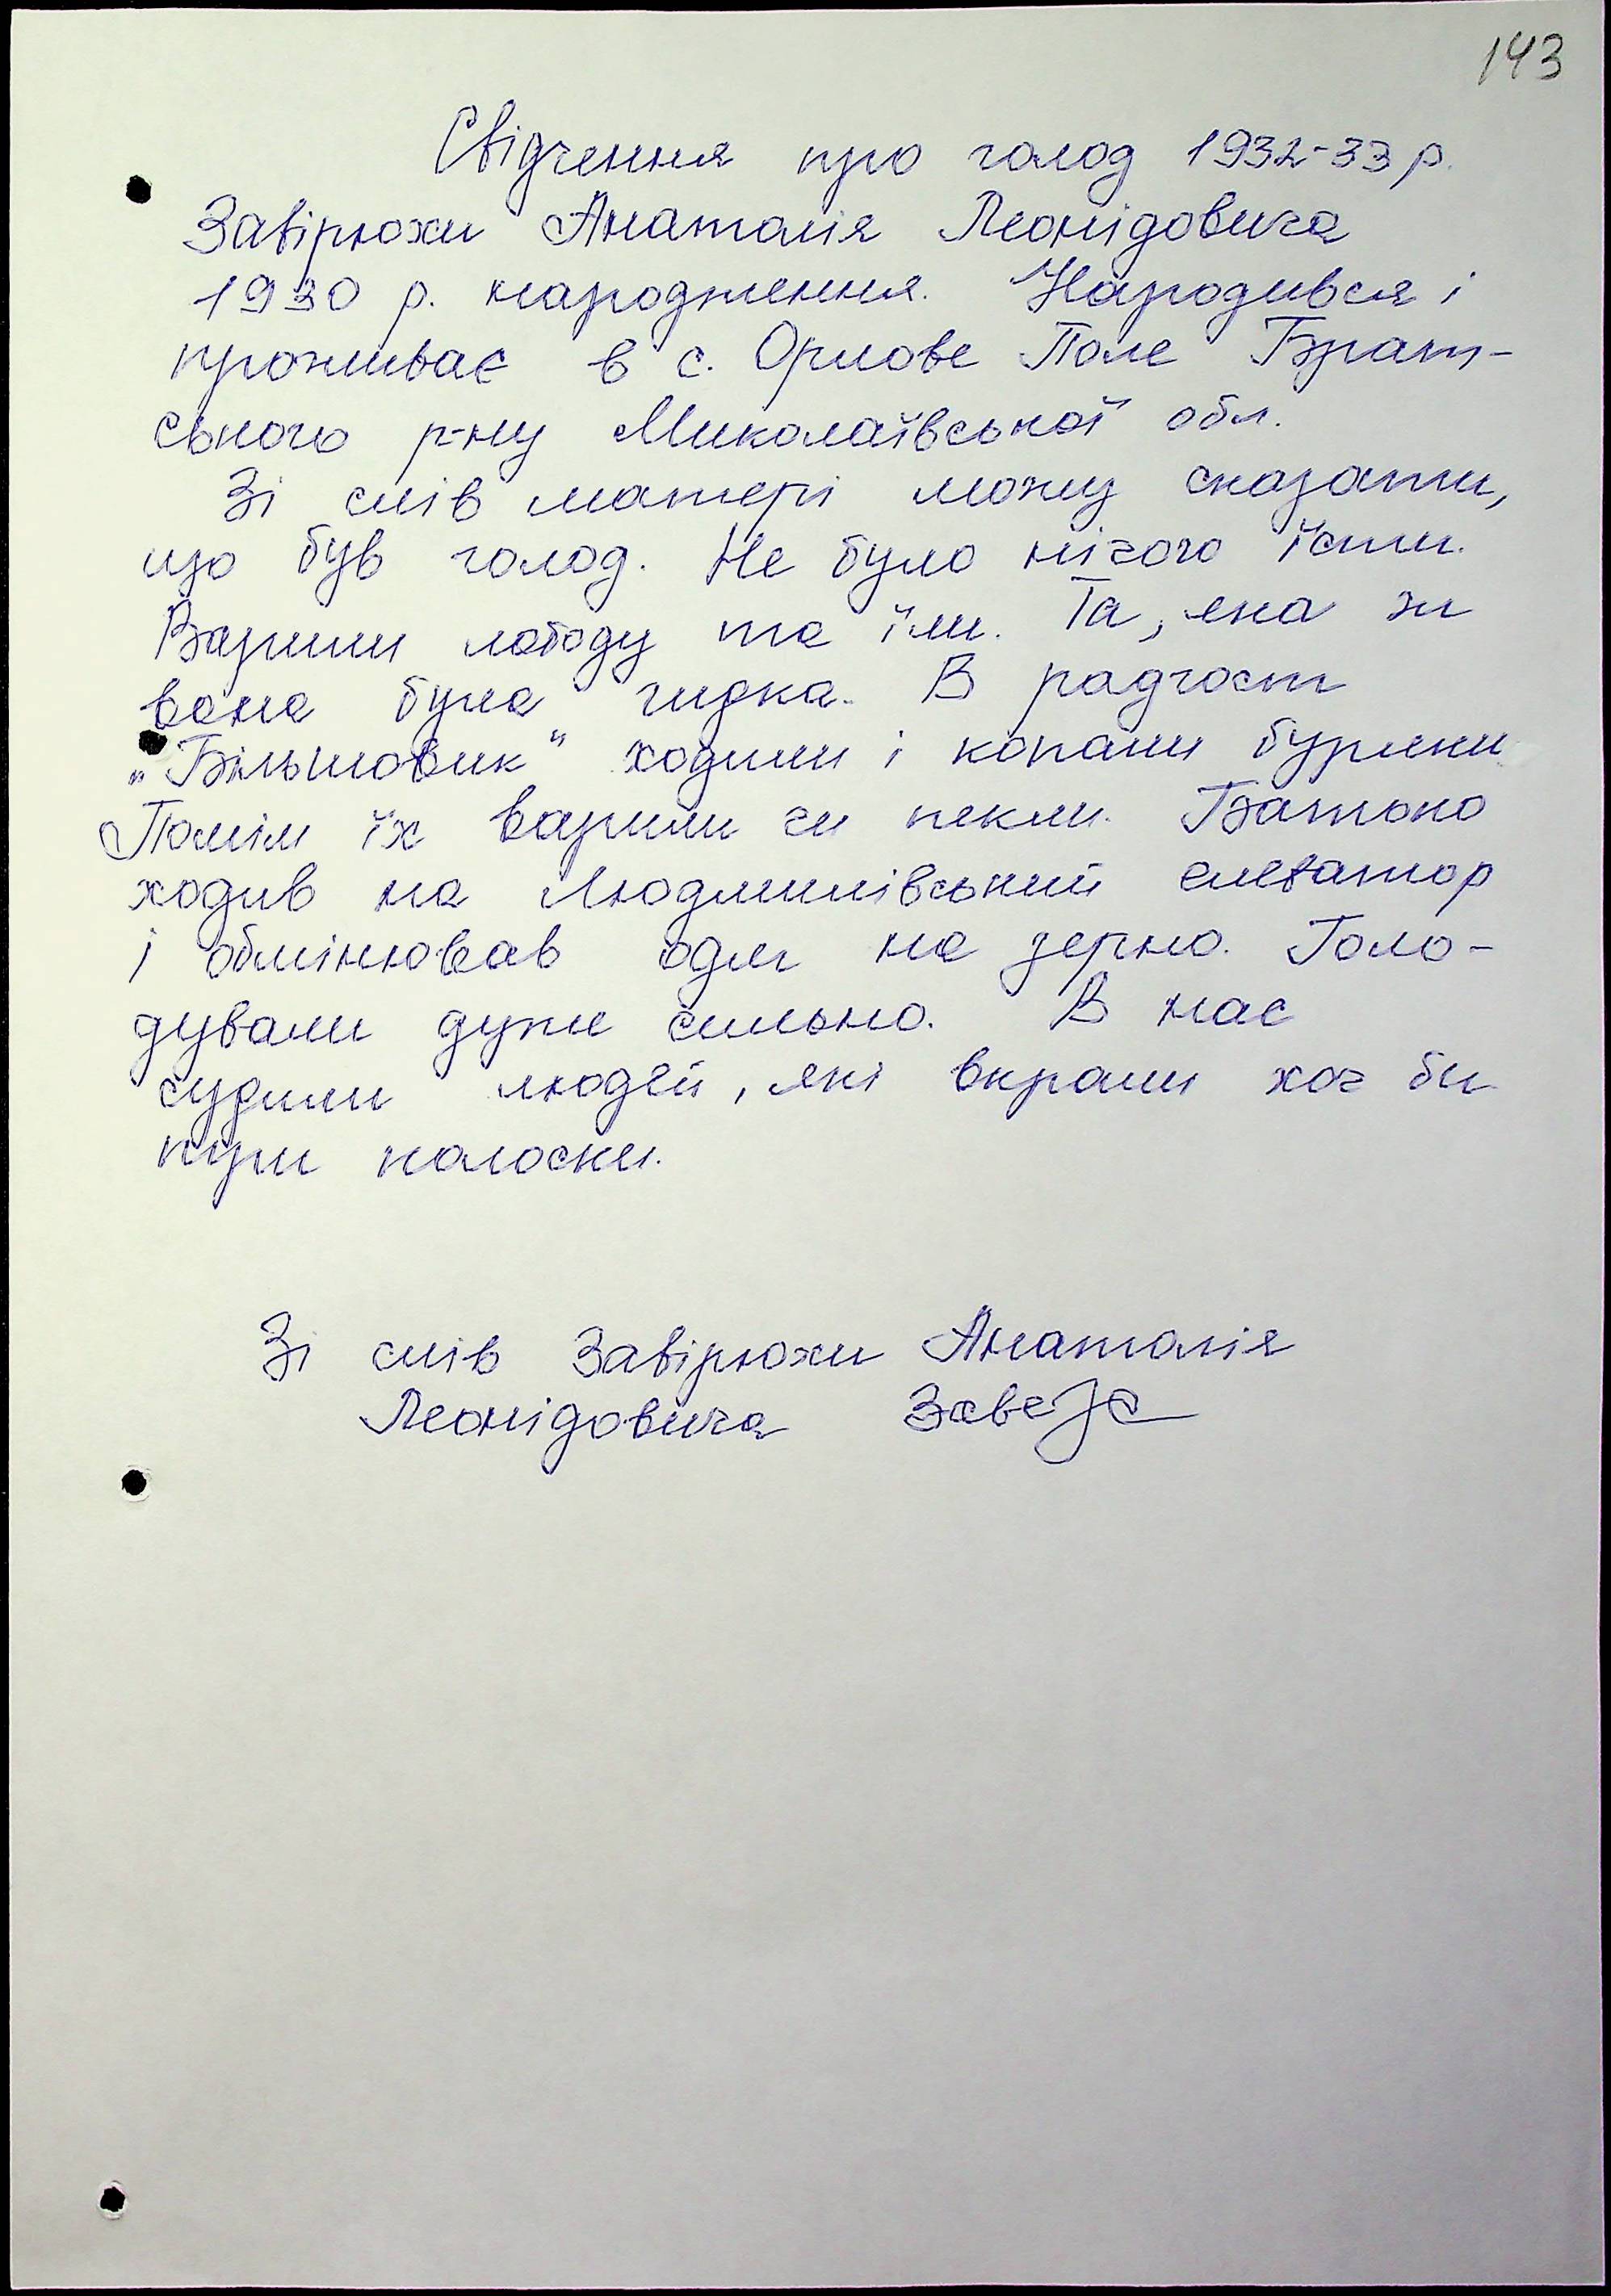 143
Свідчення про голод 1932-33 р.
Завірюхи Анатолія Леонідовича
1930 р. народження. Народився і
проживає в с. Орлове Поле Брат-
ського р-ну Миколаївської обл.
Зі слів матері можу сказати,
що був голод. Не було нічого їсти.
Варили лободу та їли. Та, яка ж
вона була гидка. В радгосп
„Більшовик“ ходили і копали буряки
Потім їх варили чи пекли. Батько
ходив на Людмилівський елеватор
і обмінював одяг на зерно. Голо-
дували дуже сильно. В нас
судили людей, які вкрали хоч би
три колоски.
Зі слів Завірюхи Анатолія
Леонідовича